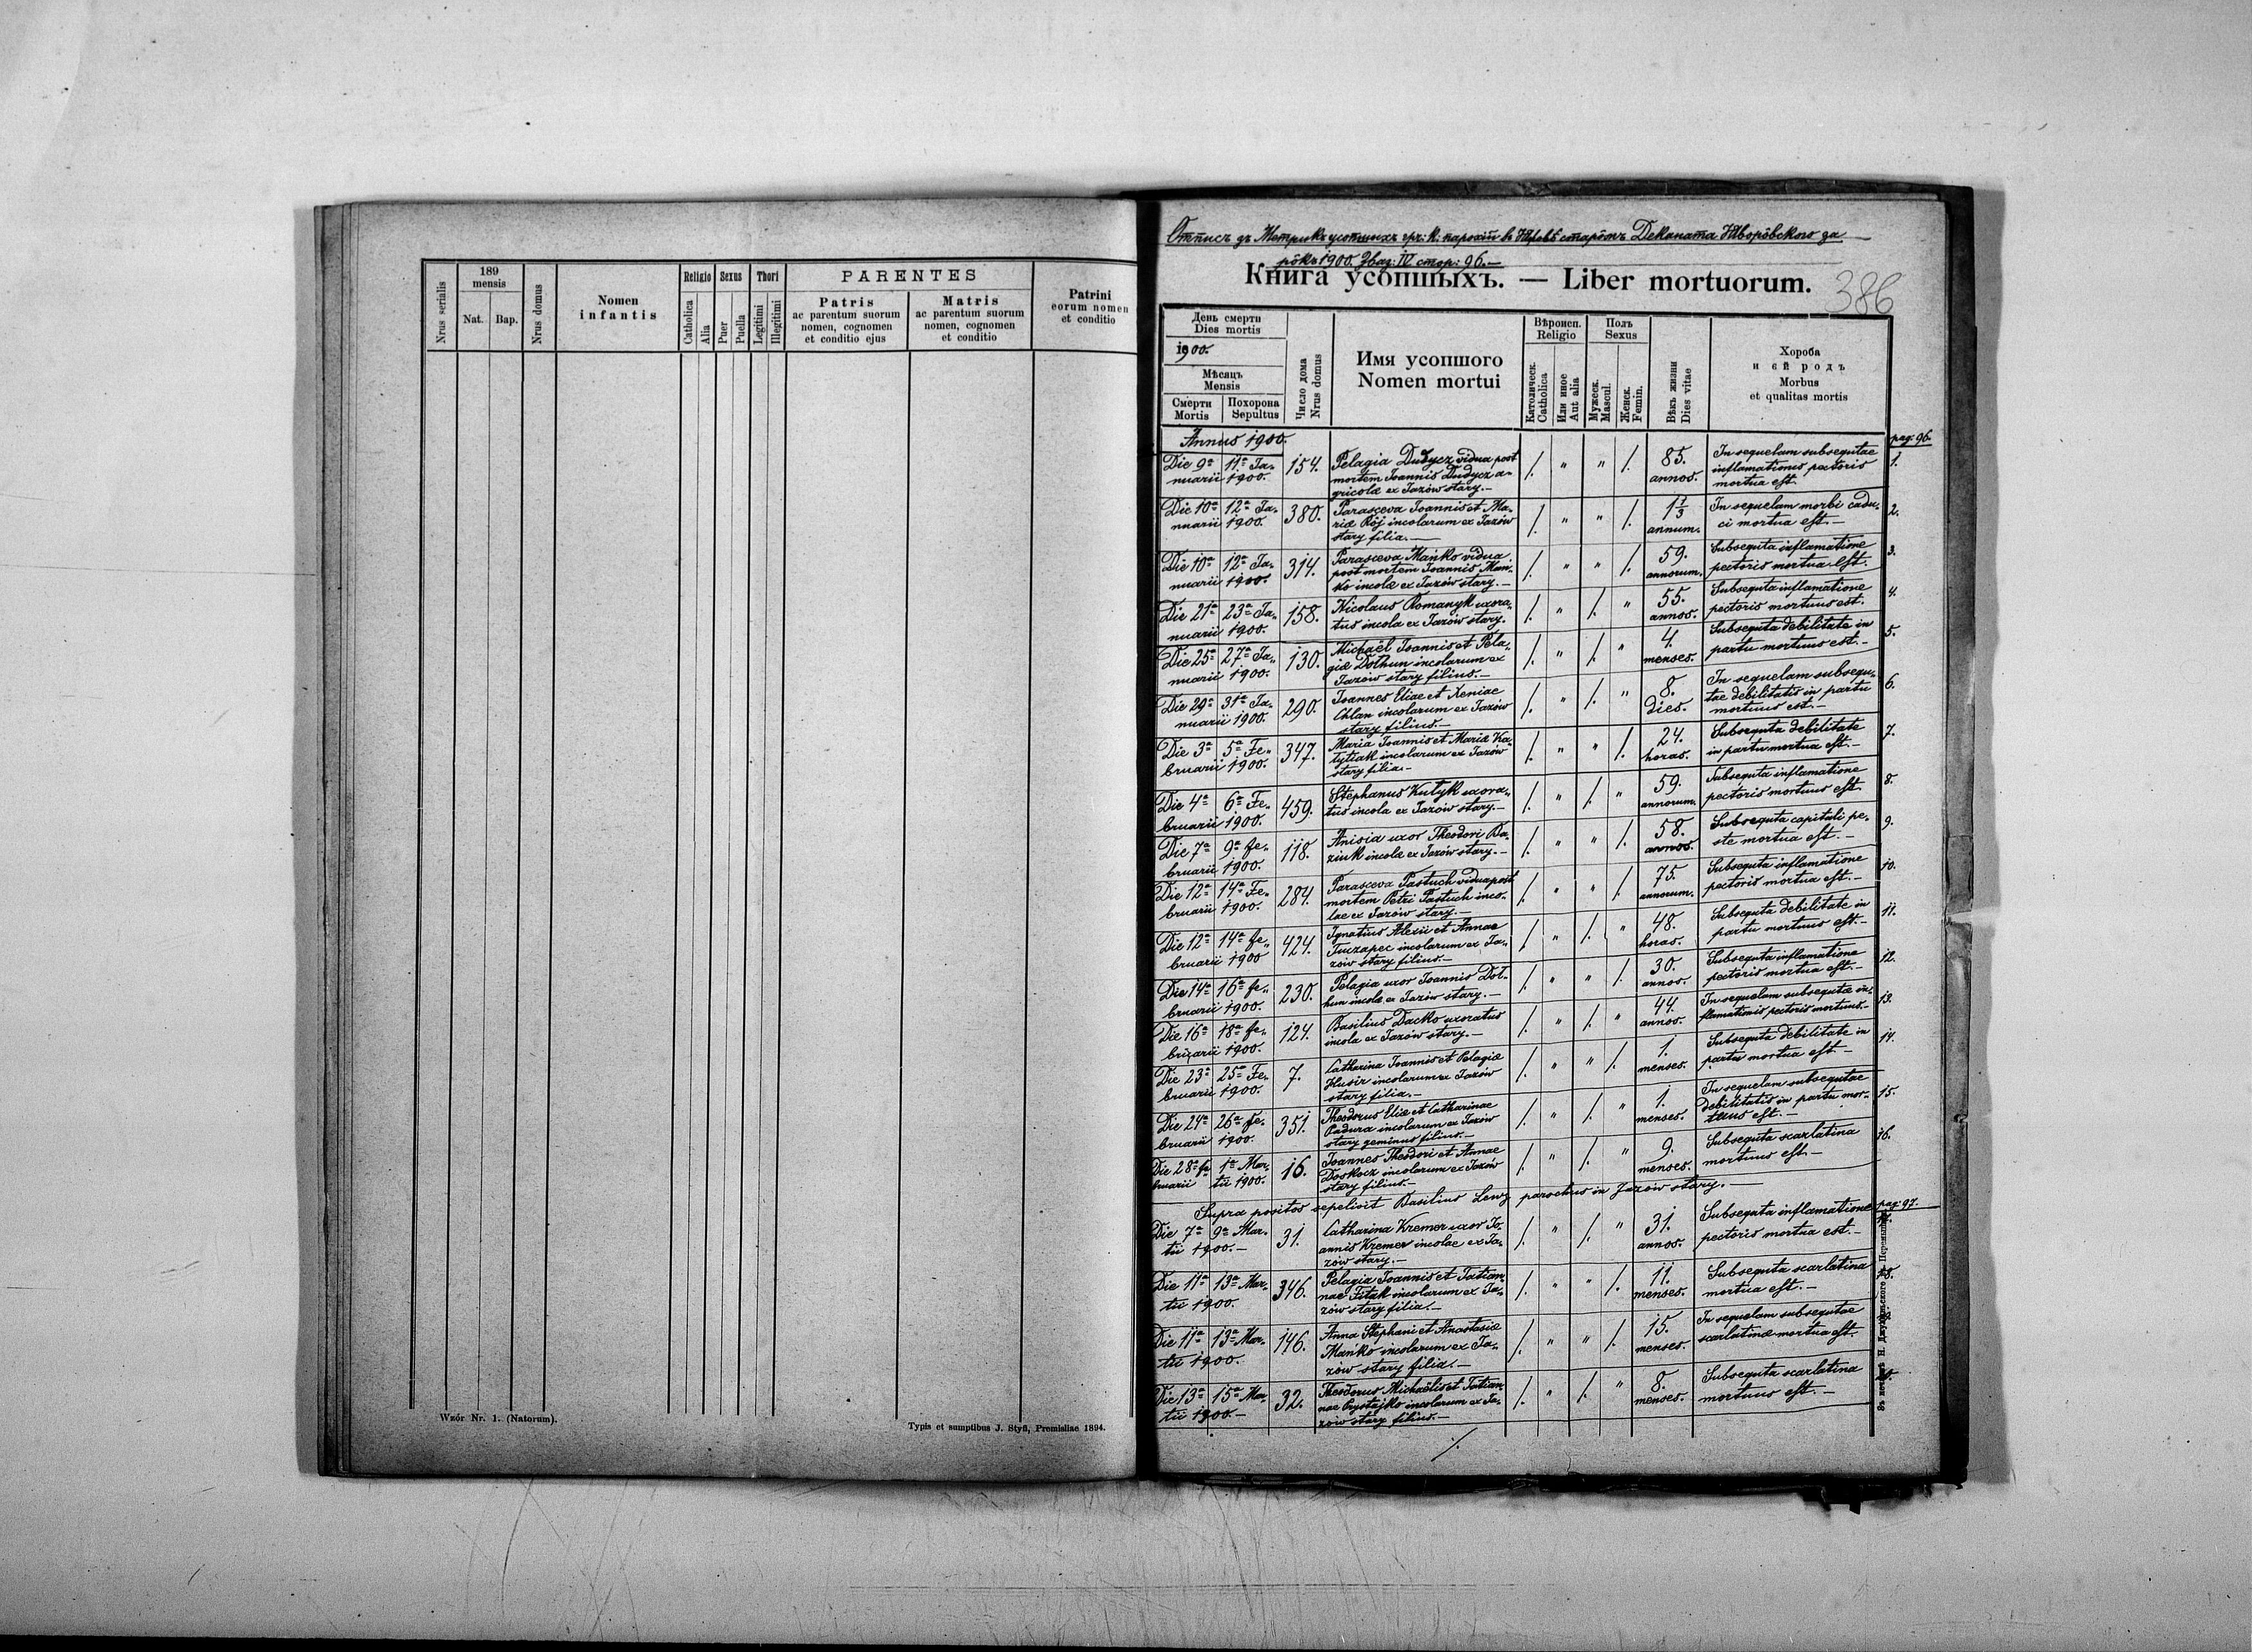 Nrus serialis
189
mensis
Nat.
Bap.
Nrus domus
Nomen
infantis
Religio
Catholica
Alia
Sexus
Puer
Puella
Thori
Legitimi
Illegitimi
PARENTES
Patris
ac parentum suorum
nomen, cognomen
et conditio ejus
Matris
ac parentum suorum
nomen, cognomen
et conditio
Patrini
eorum nomen
et conditio
Wzór Nr. 1. (Natorum).
Typis et sumptibus J. Styfi, Premisliae 1894.
Отпись зъ Метрикъ усопшихъ гр: к: парохіи въ старôмъ Деканата Яворôвского за
рôкъ 1900. Зваз: IV стор: 96.—
Книга усопшыхъ. — Liber mortuorum.
386
День смерти
Dies mortis
1900.
Мѣсяцъ
Mensis
Смерти
Mortis
Похорона
Sepultus
Число дома
Nrus domus
Имя усопшого
Nomen mortui
Вѣроисп.
Religio
Католическ.
Catholica
Или иное
Aut alia
Полъ
Sexus
Мужеск.
Mascul.
Женск.
Femin.
Вѣкъ жизни
Dies vitae
Хороба
и єй родъ
Morbus
et qualitas mortis
Annus 1900.
pag: 96.
Die 9ª 11ª Ja-
nuarii 1900.
154.
Pelagia Dudycz vidua post
mortem Joannis Dudycz a-
gricolæ ex Jazów stary.—
/. " " /.
85.
annos.
In sequelam subsequtae
inflamationis pectoris
mortua est.
1.
Die 10ª 12ª Ja-
nuarii 1900.
380.
Parasceva Joannis et Ma-
riæ Rój incolarum ex Jazów
stary filia.—
/. " " /.
1 1/3
annum.
In sequelam morbi cadu-
ci mortua est.—
2.
Die 10ª 12ª Ja-
nuarii 1900.
314.
Parasceva Mańko vidua
post mortem Joannis Mań-
ko incolæ ex Jazów stary.—
/. " " /.
59.
annorum.
Subsequta inflamatione
pectoris mortua est.
3.
Die 21ª 23ª Ja-
nuarii 1900.
158.
Nicolaus Romanyk uxora-
tus incola ex Jazów stary.
/. " /. "
55.
annos.
Subsequta inflamatione
pectoris mortuus est.
4.
Die 25ª 27ª Ja-
nuarii 1900.
130.
Michaël Joannis et Pela-
giæ Dolhun incolarum ex
Jazów stary filius.—
/. " /. "
4.
menses.
Subsequta debilitate in
partu mortuus est.—
5.
Die 29ª 31ª Ja-
nuarii 1900.
290.
Joannes Eliae et Xeniae
Chlan incolarum ex Jazów
stary filius.—
/. " /. "
8.
dies.
In sequelam subsequ-
tae debilitatis in partu
mortuus est.—
6.
Die 3ª 5ª Fe-
bruarii 1900.
347.
Maria Joannis et Mariæ Ka-
tytiak incolarum ex Jazów
stary filia.—
/. " " /.
24.
horas.
Subsequta debilitate
in partu mortua est.—
7.
Die 4ª 6ª Fe-
bruarii 1900.
459.
Stephanus Kutyk uxora-
tus incola ex Jazów stary.—
/. " /. "
59.
annorum.
Subsequta inflamatione
pectoris mortuus est.
8.
Die 7ª 9ª fe-
bruarii 1900.
118.
Anisia uxor Theodori Ba-
ziuk incolæ ex Jazów stary.—
/. " " /.
58.
annos.
Subsequta capitali pe-
ste mortua est.—
9.
Die 12ª 14ª Fe-
bruarii 1900.
284.
Parasceva Pastuch vidua post
mortem Petri Pastuch inco-
lae ex Jazów stary.—
/. " " /.
75.
annorum.
Subsequta inflamatione
pectoris mortua est.—
10.
Die 12ª 14ª fe-
bruarii 1900
424.
Ignatius Alexii et Annae
Tuczapec incolarum ex Ja-
zów stary filius.—
/. " /. "
48.
horas.
Subsequta debilitate in
partu mortuus est.—
11.
Die 14ª 16ª fe-
bruarii 1900.
230.
Pelagia uxor Joannis Dol-
hun incolæ ex Jazów stary.—
/. " " /.
30.
annos.
Subsequta inflamatione
pectoris mortua est.—
12.
Die 16ª 18ª fe-
bruarii 1900.
124.
Basilius Dacko uxoratus
incola ex Jazów stary.—
/. " /. "
44.
annos.
In sequelam subsequtæ in-
flamationis pectoris mortuus.—
13.
Die 23ª 25ª Fe-
bruarii 1900.
7.
Catharina Joannis et Pelagiæ
Husir incolarum ex Jazów
stary filia.—
/. " " /.
1.
menses.
Subsequta debilitate in
partu mortua est.—
14.
Die 24ª 26ª fe-
bruarii 1900.
351.
Theodorus Eliæ et Catharinae
Badura incolarum ex Jazów
stary geminus filius.—
/. " /. "
1.
menses.
In sequelam subsequtae
debilitatis in partu mor-
tuus est.—
15.
Die 28ª fe- 1ª Mar-
bruarii tii 1900.
16.
Joannes Theodori et Annae
Doskocz incolarum ex Jazów
stary filius.—
/. " /. "
9.
menses.
Subsequta scarlatina
mortuus est.—
16.
Supra positos sepelivit Basilius Lewy parochus in Jazów stary.—
pag: 97.
Die 7ª 9ª Mar-
tii 1900.—
31.
Catharina Kremer uxor Jo-
annis Kremer incolae ex Ja-
zów stary.—
/. " /. "
31.
annos.
Subsequta inflamatione
pectoris mortua est.—
Die 11ª 13ª Mar-
tii 1900.
346.
Pelagia Joannis et Tatian-
nae Fitak incolarum ex Ja-
zów stary filia.—
/. " " /.
11.
menses.
Subsequta scarlatina
mortua est.—
18.
Die 11ª 13ª Mar-
tii 1900.
146.
Anna Stephani et Anastasiæ
Mańko incolarum ex Ja-
zów stary filia.—
/. " " /.
15.
menses.
In sequelam subsequtae
scarlatinæ mortua est.
Die 13ª 15ª Mar-
tii 1900.—
32.
Theodorus Michaëlis et Tatian-
nae Prystajko incolarum ex Ja-
zów stary filius.—
/. " /. "
8.
menses.
Subsequta scarlatina
mortuus est.—
/.